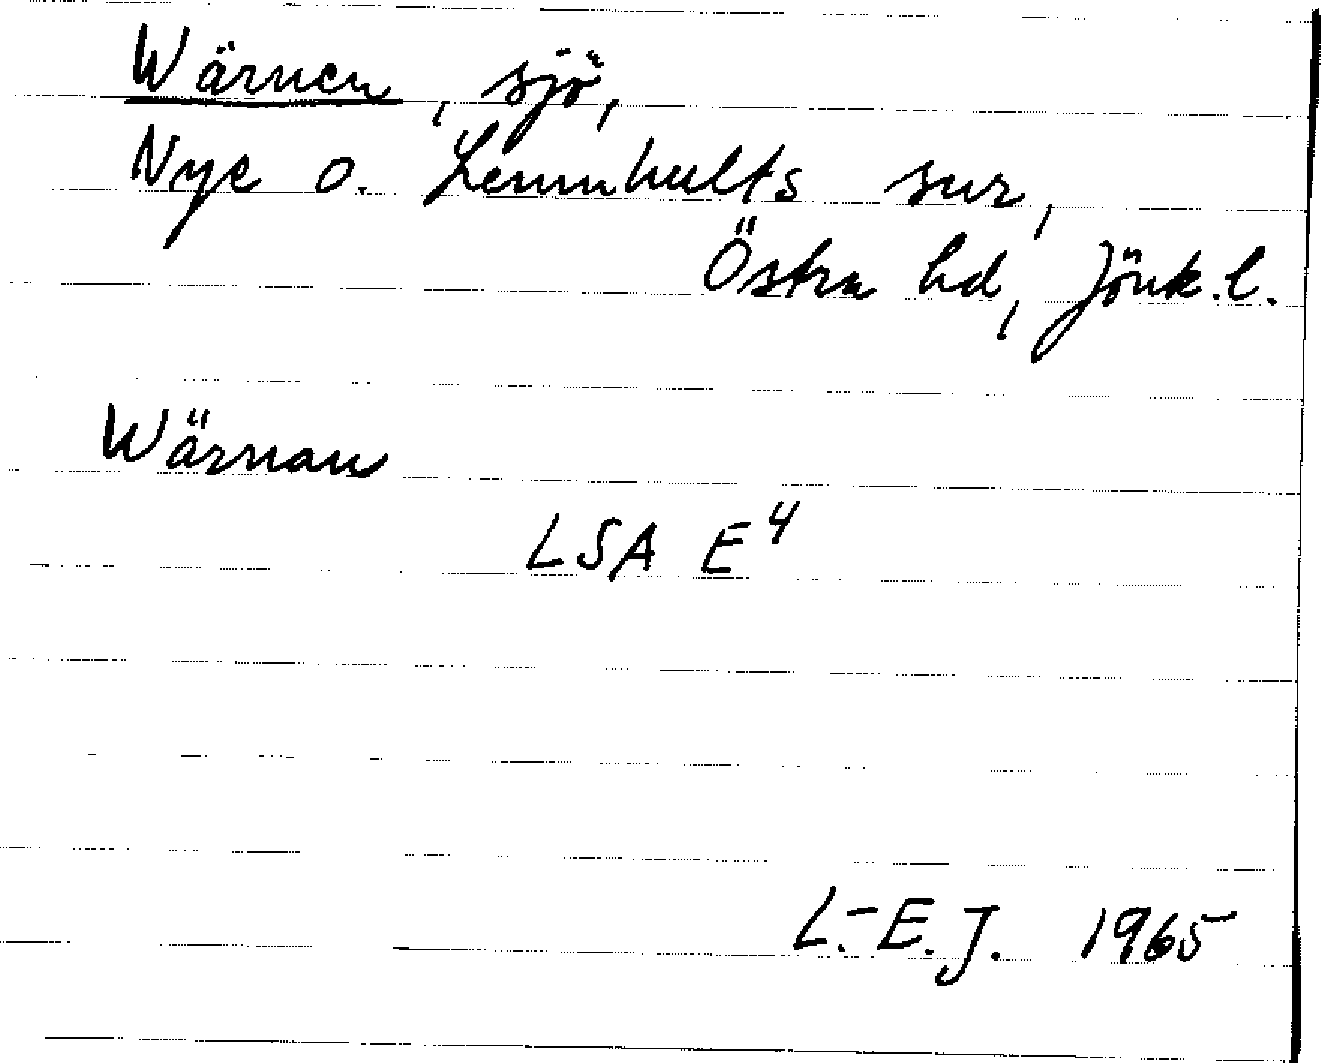 Wärnen, sjö,
Nye o. Lemnhults snr,
Östra hd, Jönk.l.
Wärnan
LSA E⁴
L.-E.J. 1965